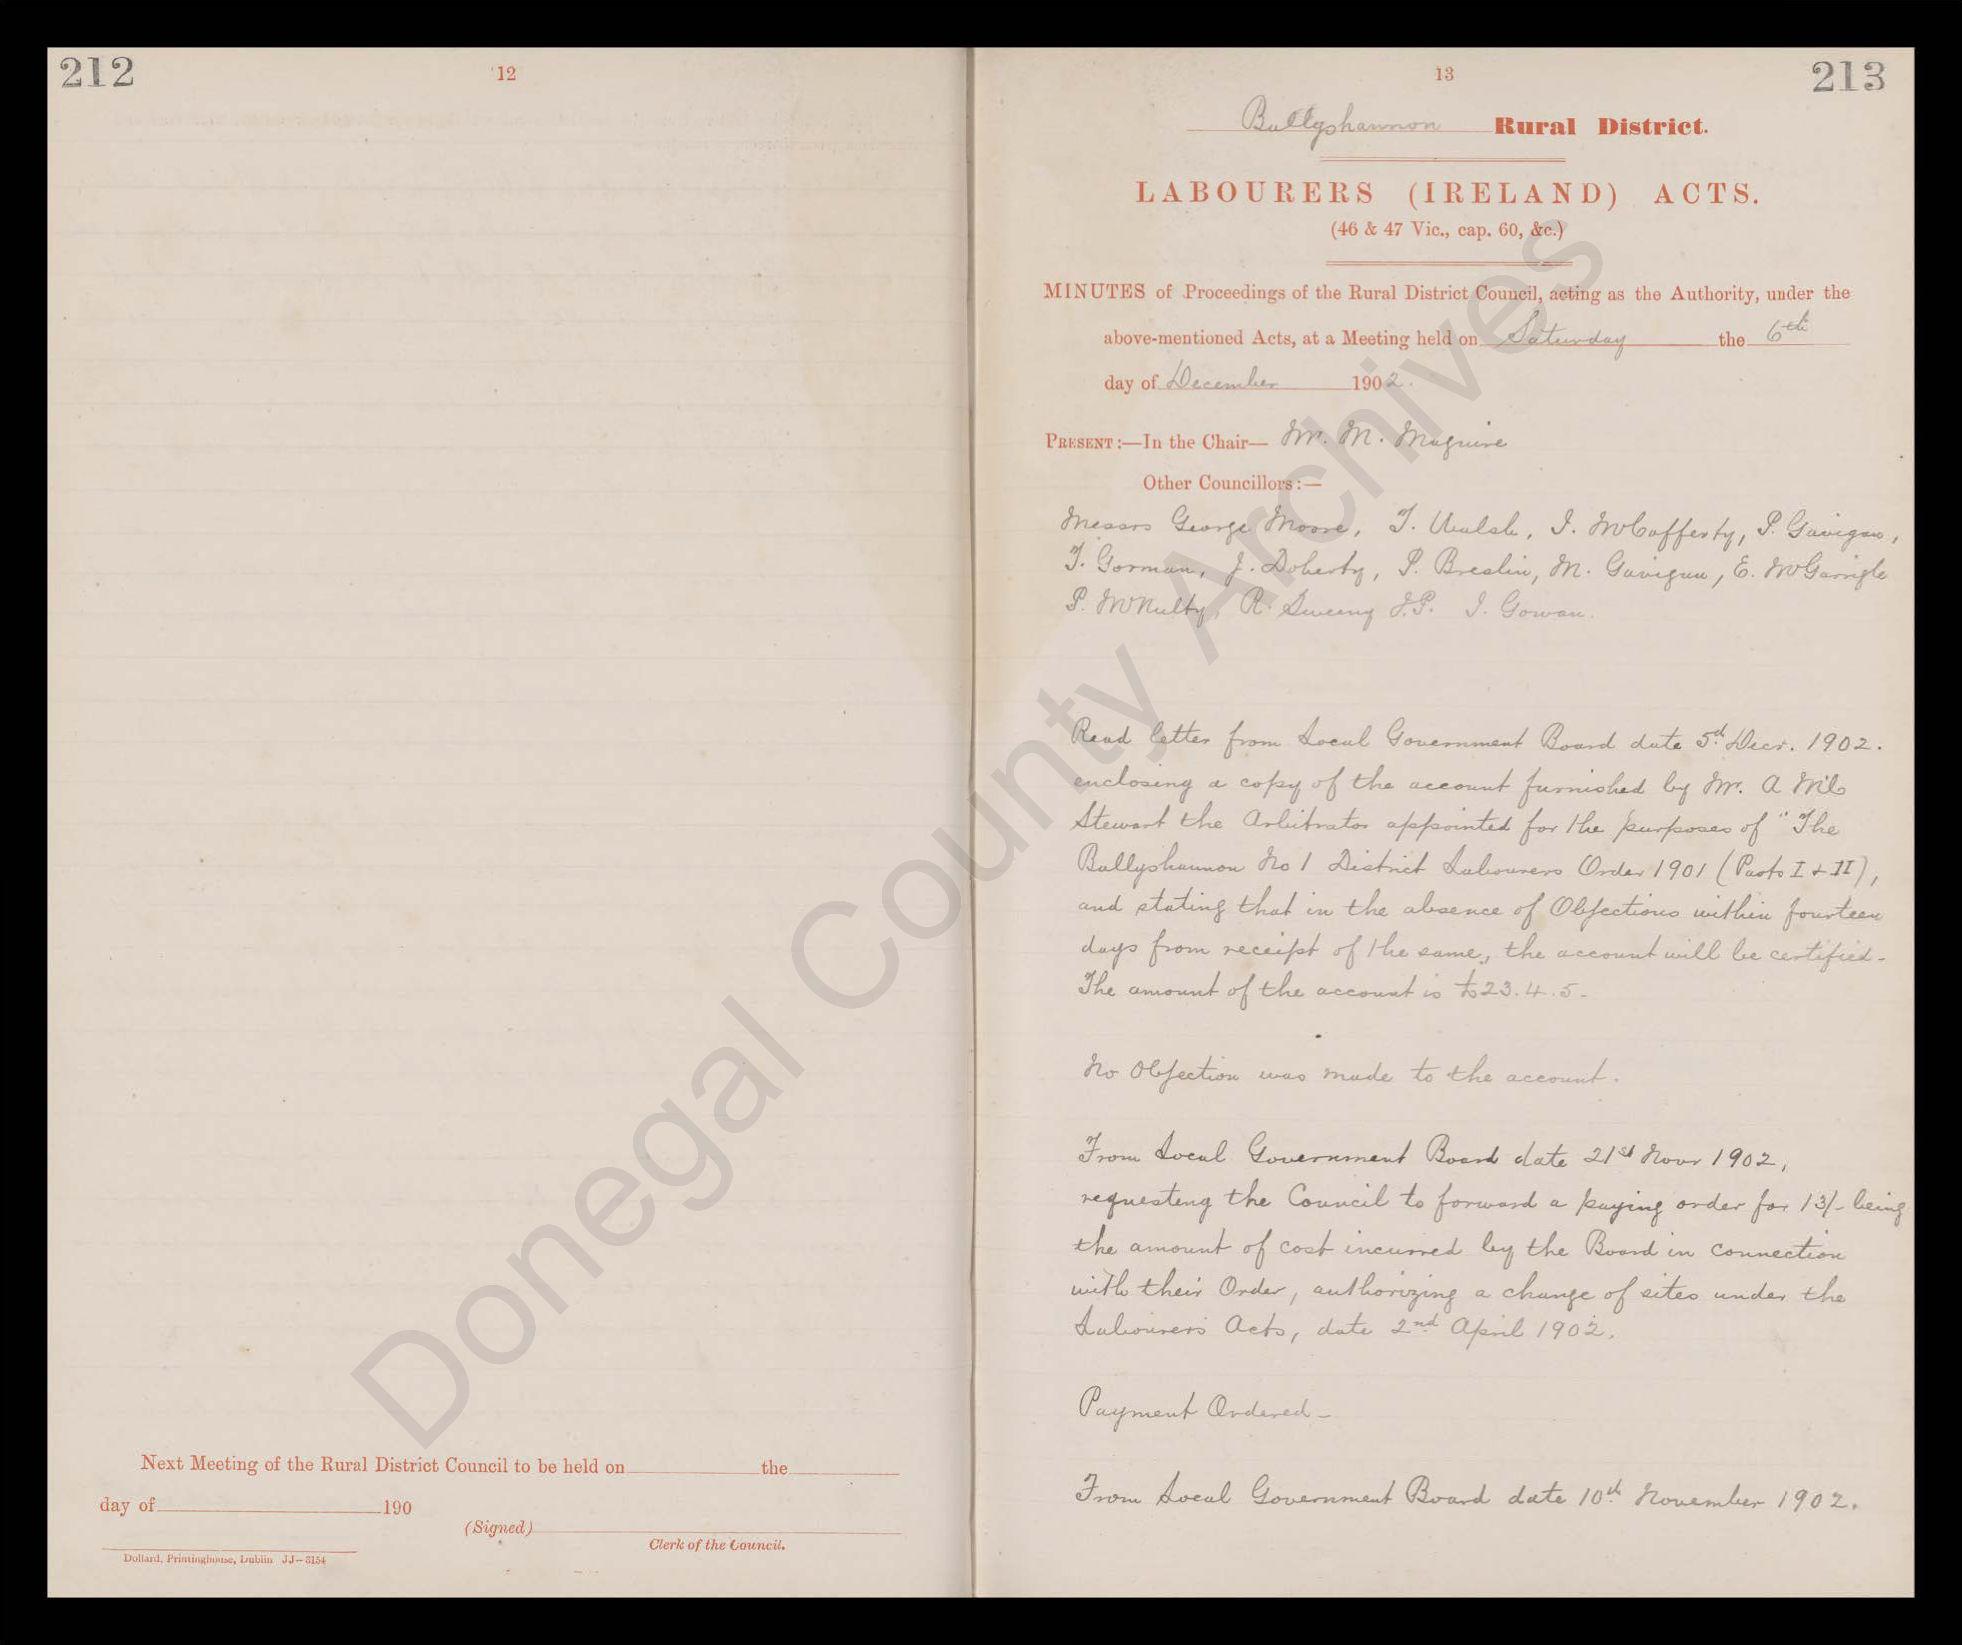 212
12
Next Meeting of the Rural District Council to be held on the
day of 190
(Signed)
Clerk of the Council.
Dollard, Printinghouse, Dublin JJ-3154
13
213
Ballyshannon Rural District.
LABOURERS (IRELAND) ACTS.
(46 & 47 Vic., cap. 60, &c.)
MINUTES of Proceedings of the Rural District Council, acting as the Authority, under the
above-mentioned Acts, at a Meeting held on Saturday the 6th
day of December 1902.
PRESENT:—In the Chair— Mr. M. Maguire
Other Councillors:—
Messrs George Moore, T. Walsh, J. McCafferty, P. Gavigan,
T. Gorman, J. Doherty, P. Breslin, M. Gavigan, E. McGarrigle
P. McNulty, R. Sweeny J.P. J. Gowan.
Read letter from Local Government Board date 5d Decr. 1902.
enclosing a copy of the account furnished by Mr. A
Stewart the Arbitrator appointed for the purposes of "The
Ballyshannon No 1 District Labourers Order 1901 (Parts I & II),
and stating that in the absence of Objections within fourteen
days from receipt of the same, the account will be certified-
The amount of the account is £23.4.5-
No Objection was made to the account.
From Local Government Board date 21st Novr 1902,
requesting the Council to forward a paying order for 13/- being
the amount of cost incurred by the Board in connection
with their Order, authorizing a change of sites under the
Labourers Acts, date 2nd April 1902.
Payment Ordered-
From Local Government Board date 10th November 1902.
Donegal County Archives